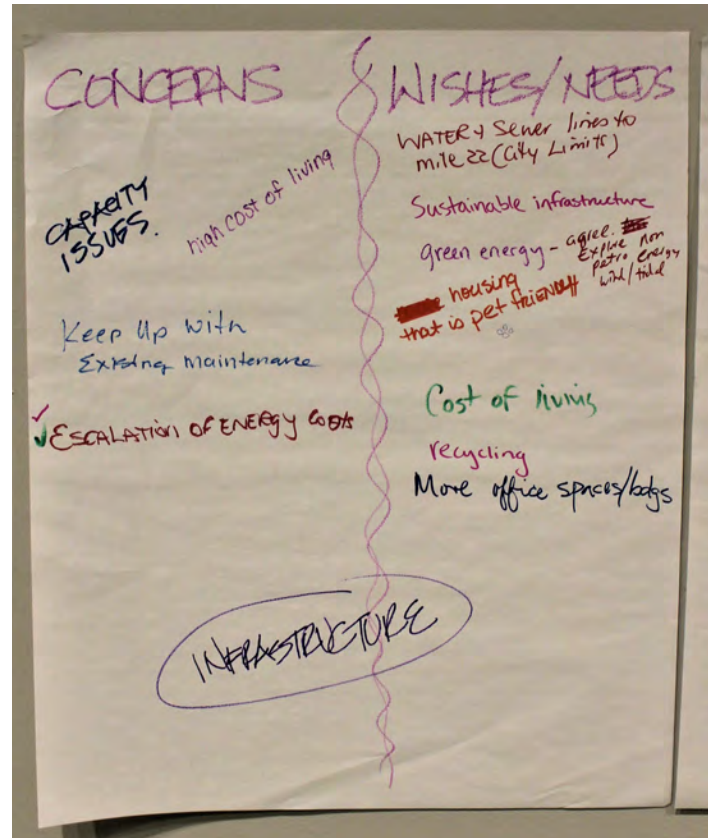 CONCERNS
CAPACITY
ISSUES.
high cost of living
Keep Up with
Existing maintenance
ESCALATION OF ENERGY COSTS
WISHES/NEEDS
WATER & Sewer lines to
mile 22 (City Limits)
Sustainable infrastructure
green energy - agree.
Explore non
petro energy
wind/tidal
housing
that is pet FRIENDLY
Cost of living
recycling
More office spaces/bdgs
INFRASTRUCTURE